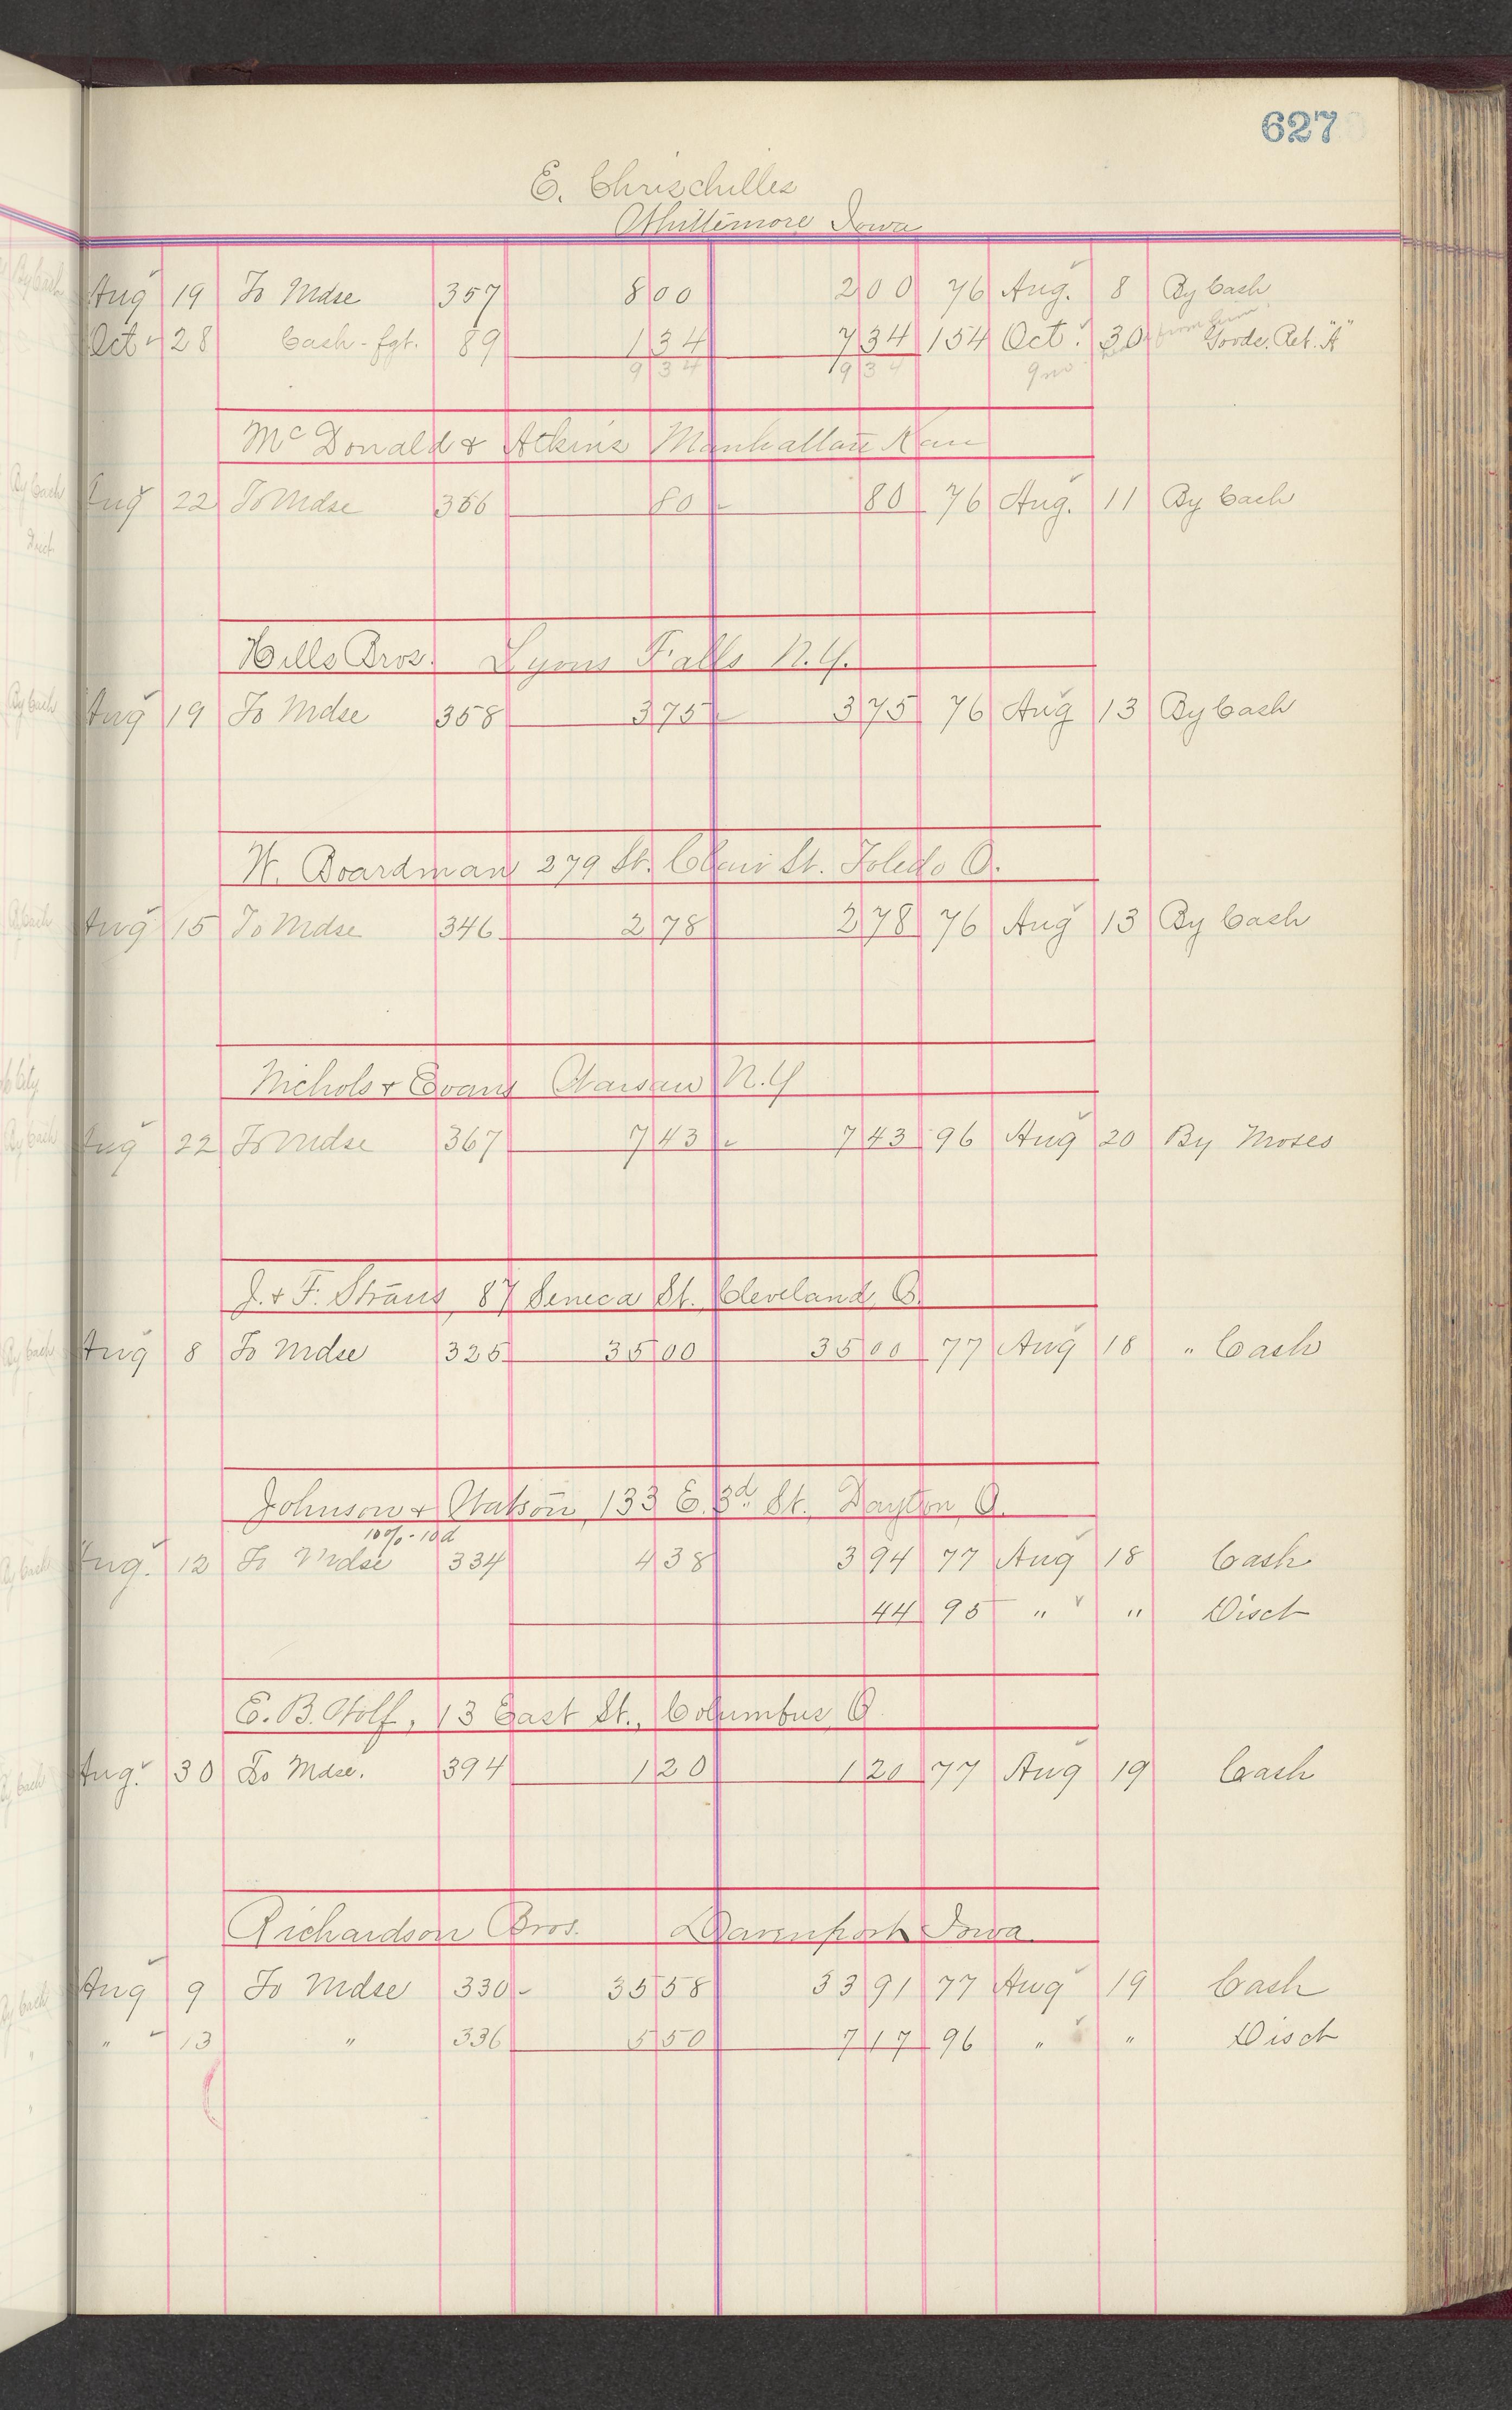 627
E. Chrischilles
Whittemore Iowa
Aug 19 To Mdse 357 8 00 2 00 76 Aug. 8 By Cash
Oct 28 Cash - fgt. 89 1 34 7 34 154 Oct. 30 Goods. Ret. "A"
9 34 9 34
McDonald & Atkins Manhattan Kan
Aug 22 To Mdse 366 80 80 76 Aug. 11 By Cash
Hills Bros. Lyons Falls N.Y.
Aug 19 To Mdse 358 3 75 3 75 76 Aug 13 By Cash
W. Boardman 279 St. Clair St. Toledo O.
Aug 15 To Mdse 346 2 78 2 78 76 Aug 13 By Cash
Nichols & Evans Warsaw N.Y
Aug 22 To Mdse 367 7 43 7 43 96 Aug 20 By Moses
J. & F. Straus, 87 Seneca St. Cleveland, O.
Aug 8 To Mdse 325 35 00 35 00 77 Aug 18 " Cash
Johnson & Watson, 133 E. 3d St., Dayton, O.
10%-10d
Aug. 12 To Mdse 334 4 38 3 94 77 Aug 18 Cash
44 95 " " Disct
E. B. Wolf, 13 East St., Columbus, O
Aug. 30 To Mdse. 394 1 20 1 20 77 Aug 19 Cash
Richardson Bros. Davenport Iowa.
Aug 9 To Mdse 330 35 58 33 91 77 Aug 19 Cash
" 13 " 336 5 50 7 17 96 " " Disct